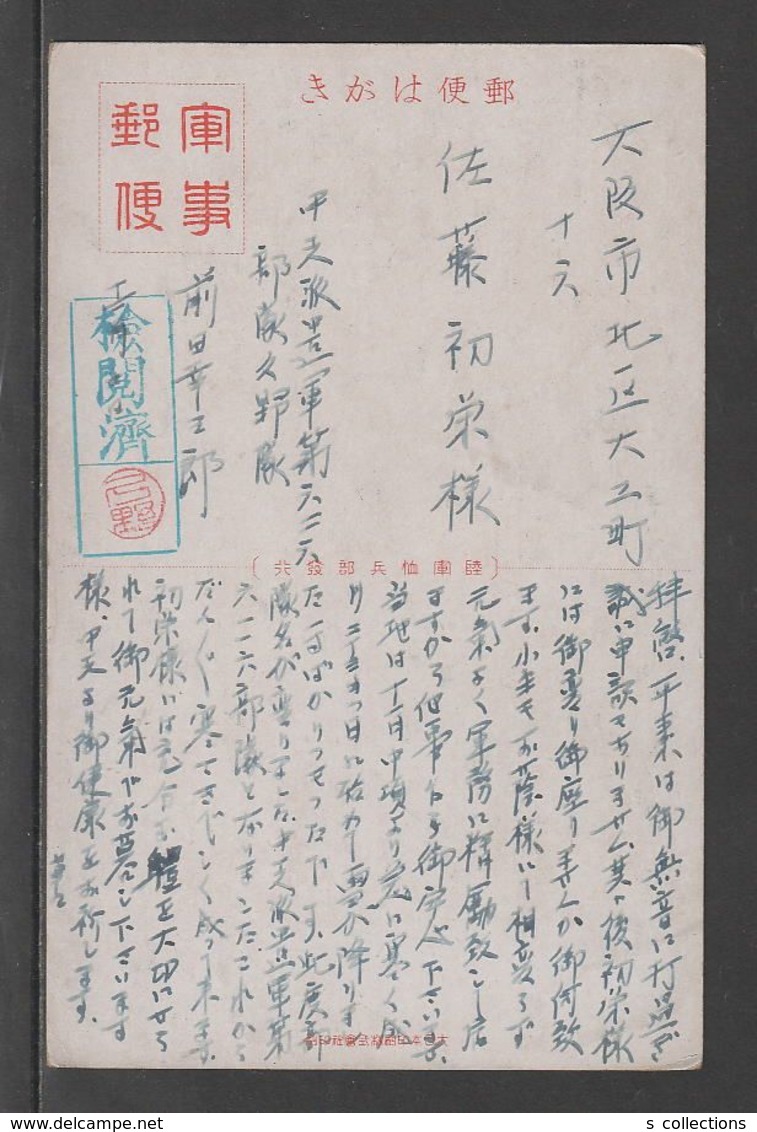 郵便はがき
軍事
郵便
大阪市北区大工町
十六
佐藤初栄様
中支派遣軍第六二六
部隊久野隊
前田幸三郎
検閲濟
〔陸軍恤兵部發行〕
拝啓、平素は御無音に打過ぎ
誠に申訳ありません其の後初栄様
には御変り御座りませんか御伺致
ます。小生もお蔭様にて相変らず
元氣よく軍務に精励致し居
ますから他事乍ら御安心下さいませ
当地は十一月中頃より急に寒く成
り二十三日に始めて雪が降りまし
た 此度部
隊名が変りました中支派遣軍第
六二六部隊となりましたこれから
だんだん寒さきびしく成って来ます
初栄様には 體を大切にせら
れて御元氣でお暮し下さいます
様、中支より御健康をお祈します。
s collections